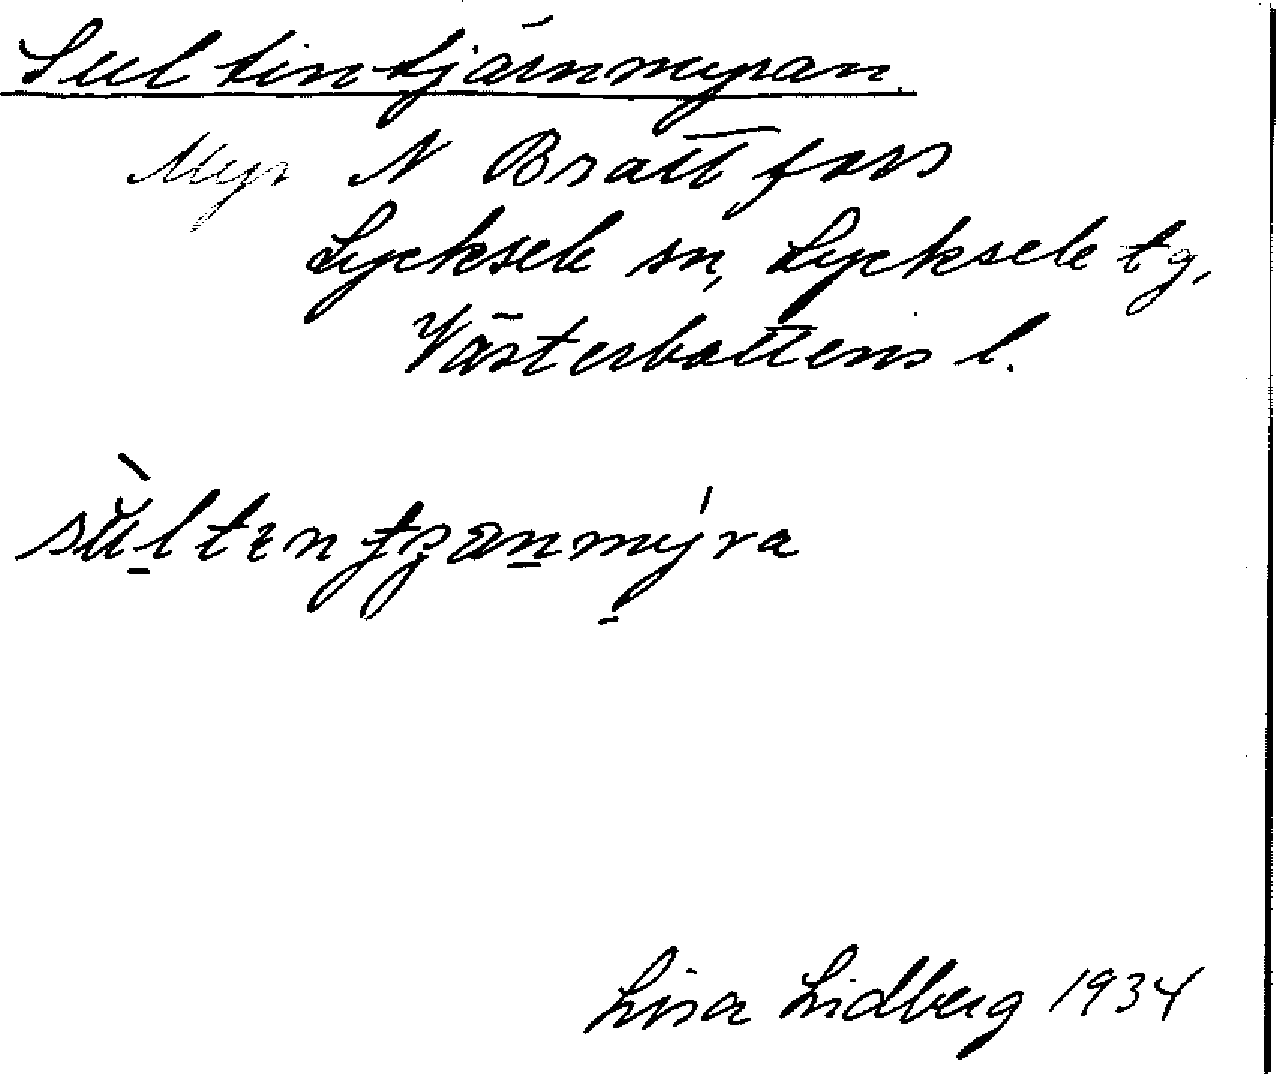 Sultintjärnmyran
Myr N Brattfors
Lycksele sn, Lycksele tg,
Västerbottens l.
Lisa Lidberg 1934